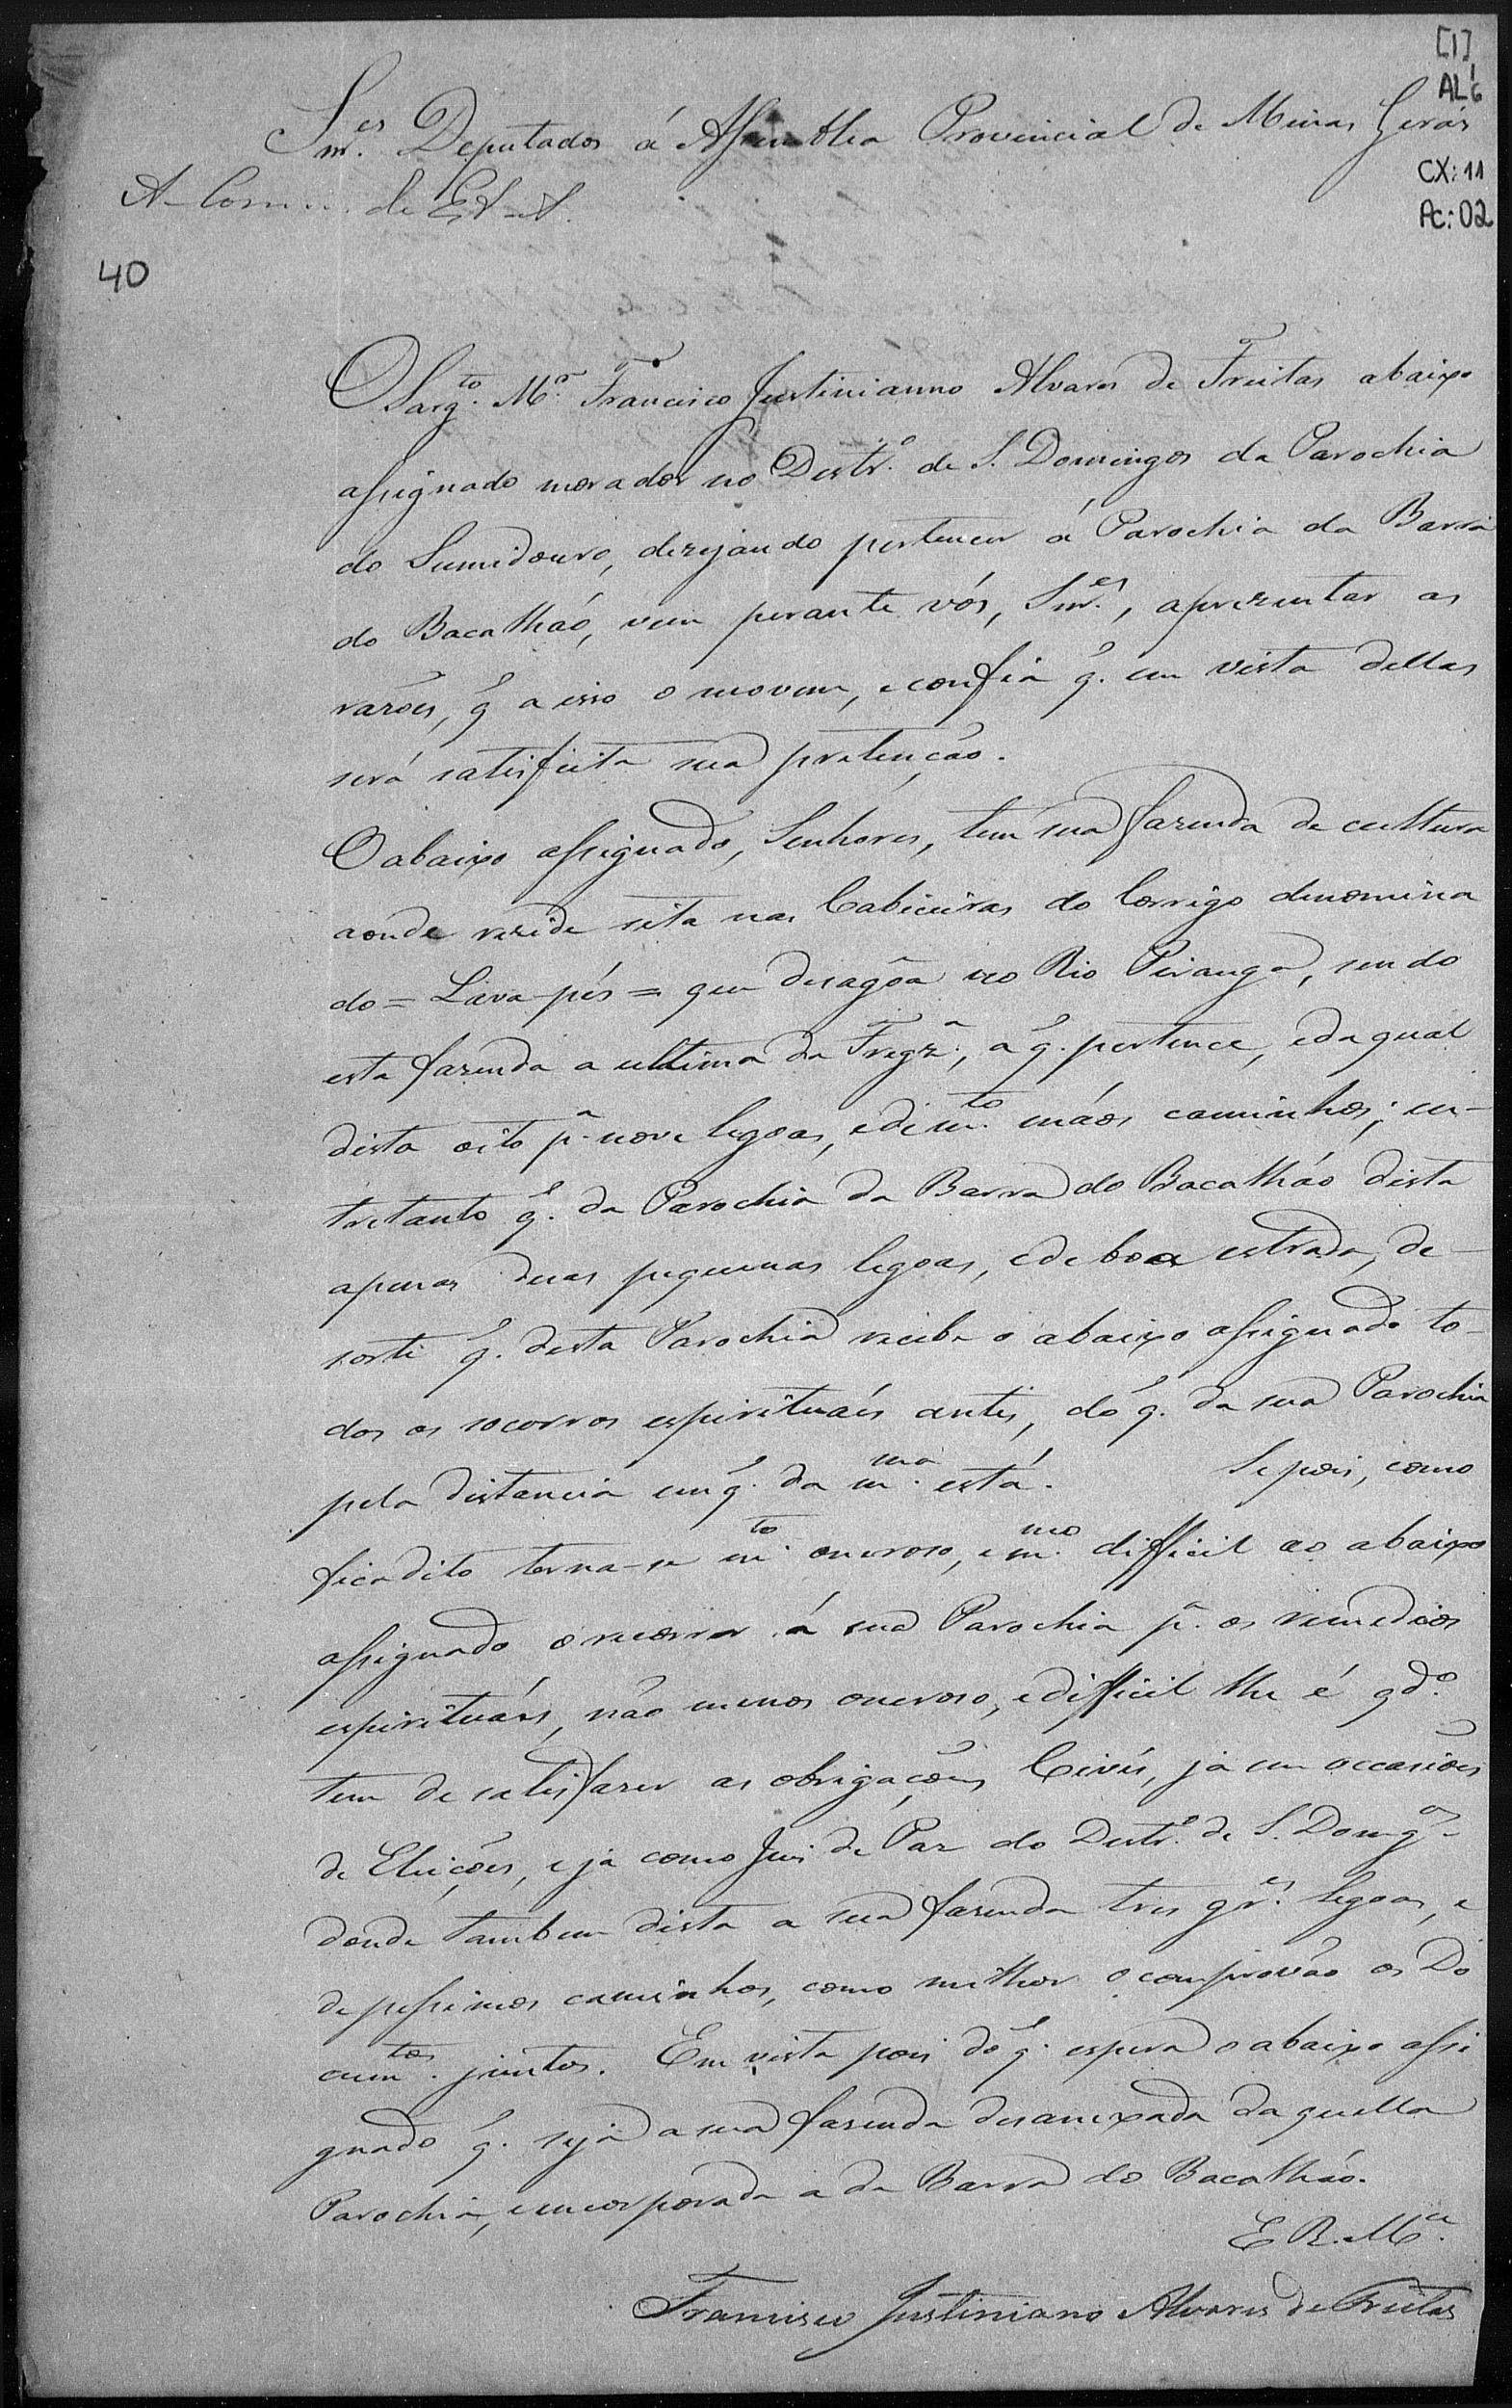 [1]
AL 1/6
Snr.es Deputados á Assemblea Provincial de Minas Geräs
CX: 11
A Com... de
PC: 02
40
O Sarg.to M.or Francisco Justinianno Alvares de Freitas abaixo
assignado morador no Distr.o de S. Domingos da Parochia
do Sumidouro, dezejando pertencer á Parochia da Barra
do Bacalháo, vem perante vós, Snr.es, aprezentar as
razões, q̃ a isso o movem, e confia q̃. em vista dellas
será satisfeita sua pretenção.
O abaixo assignado, Senhores, tem sua fazenda de cultura
aonde rezide sita nas Cabiceiras do Corrigo denomina
do = Lava-pés = que desagôa no Rio Piranga, sendo
esta fazenda a ultima da Fregz.a, a q̃. pertence, e da qual
dista oito p.a nove legoas, e de m.to máos caminhos; en-
tretanto q̃. da Parochia da Barra do Bacalháo dista
apenas duas pequenas legoas, e de boa estrada, de-
sorte q̃. desta Parochia recebe o abaixo assignado to-
dos os socorros espirituáis antes, do q̃. da sua Parochia
pela distancia em q̃. da m.ma está. Se pois, como
fica dito torna-se m.to oneroso, e m.mo difficil ao abaixo
assignado o recorrer á sua Parochia p.a os remedios
espirituáis, não menos oneroso, e difficil lhe é qd.o
tem de satisfazer as obrigações Civis, já em occasiões
de Eleições, e já como Juis de Paz do Distr.o de S. Domg.os
donde tambem dista a sua fazenda tres gr.es legoas, e
de pessimos caminhos, como milhor o comprovão os Do
cum.tos juntos. Em vista pois do q̃. espera o abaixo assi
gnado q̃. seja a sua fazenda desanexada daquella
Parochia, e incorporada a da Barra do Bacalháo.
E. R. M.ce
Francisco Justiniano Alvares de Freitas